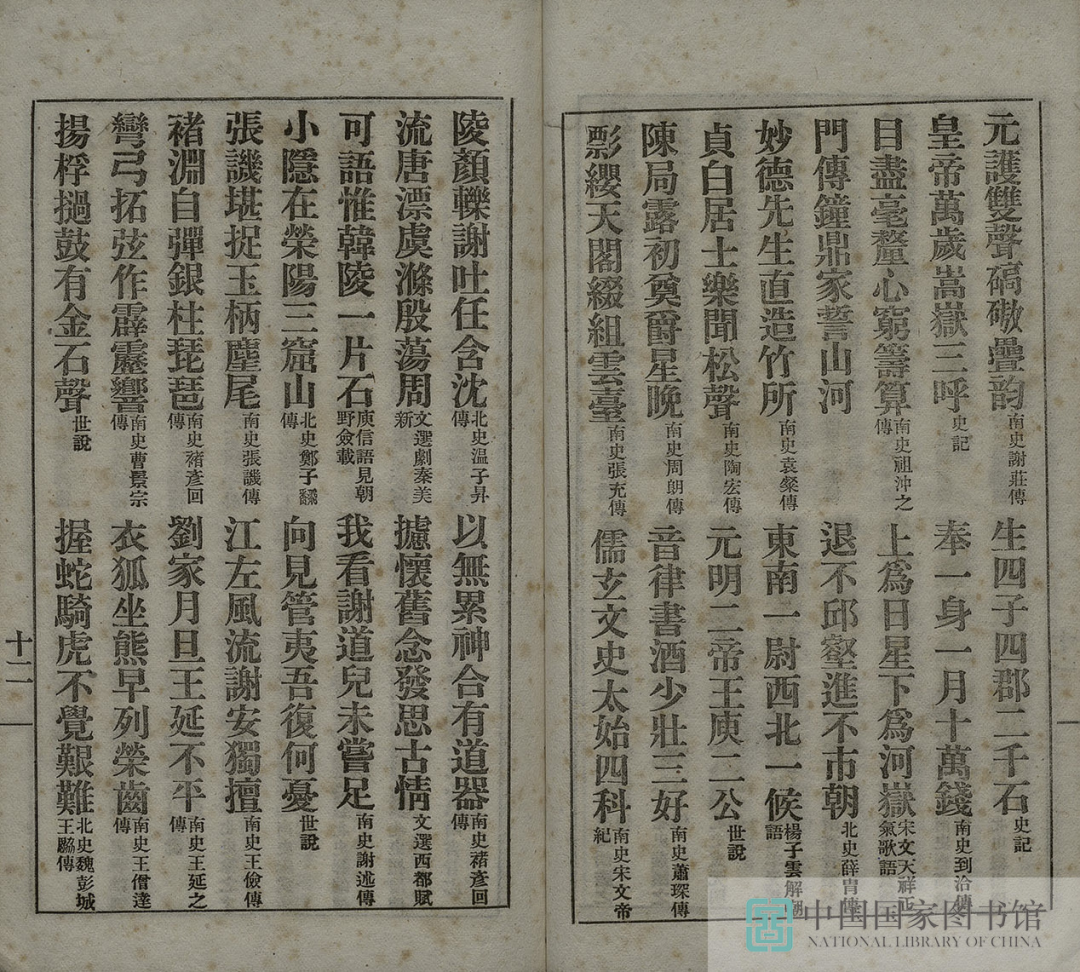 元護雙聲碻磝疊韵南史謝莊傳 生四子四郡二千石史記
皇帝萬歲嵩嶽三呼史記 奉一身一月十萬錢南史到洽傳
目盡毫釐心窮籌算南史祖沖之傳 上爲日星下爲河嶽宋文天祥正氣歌語
門傳鐘鼎家誓山河 退不邱壑進不市朝北史薛胄傳
妙德先生直造竹所南史袁粲傳 東南一尉西北一候楊子雲解嘲語
貞白居士樂聞松聲南史陶宏傳 元明二帝王庾二公世說
陳局露初奠爵星晚南史周朗傳 音律書酒少壯三好南史蕭琛傳
影纓天閣綴組雲臺南史張充傳 儒玄文史太始四科南史宋文帝紀
陵顏轢謝吐任含沈北史温子昇傳 以無累神合有道器南史褚彥回傳
流唐漂虞滌殷蕩周文選劇秦美新 攄懷舊念發思古情文選西都賦
可語惟韓陵一片石庾信語見朝野僉載 我看謝道兒未嘗足南史謝述傳
小隱在滎陽三窟山北史鄭子翻傳 向見管夷吾復何憂世說
張譏堪捉玉柄麈尾南史張譏傳 江左風流謝安獨擅南史王儉傳
褚淵自彈銀柱琵琶南史褚彥回傳 劉家月旦王延不平南史王延之傳
彎弓拓弦作霹靂響南史曹景宗傳 衣狐坐熊早列榮齒南史王僧達傳
揚桴撾鼓有金石聲世說 握蛇騎虎不覺艱難北史魏彭城王勰傳
十二
中国国家图书馆
NATIONAL LIBRARY OF CHINA